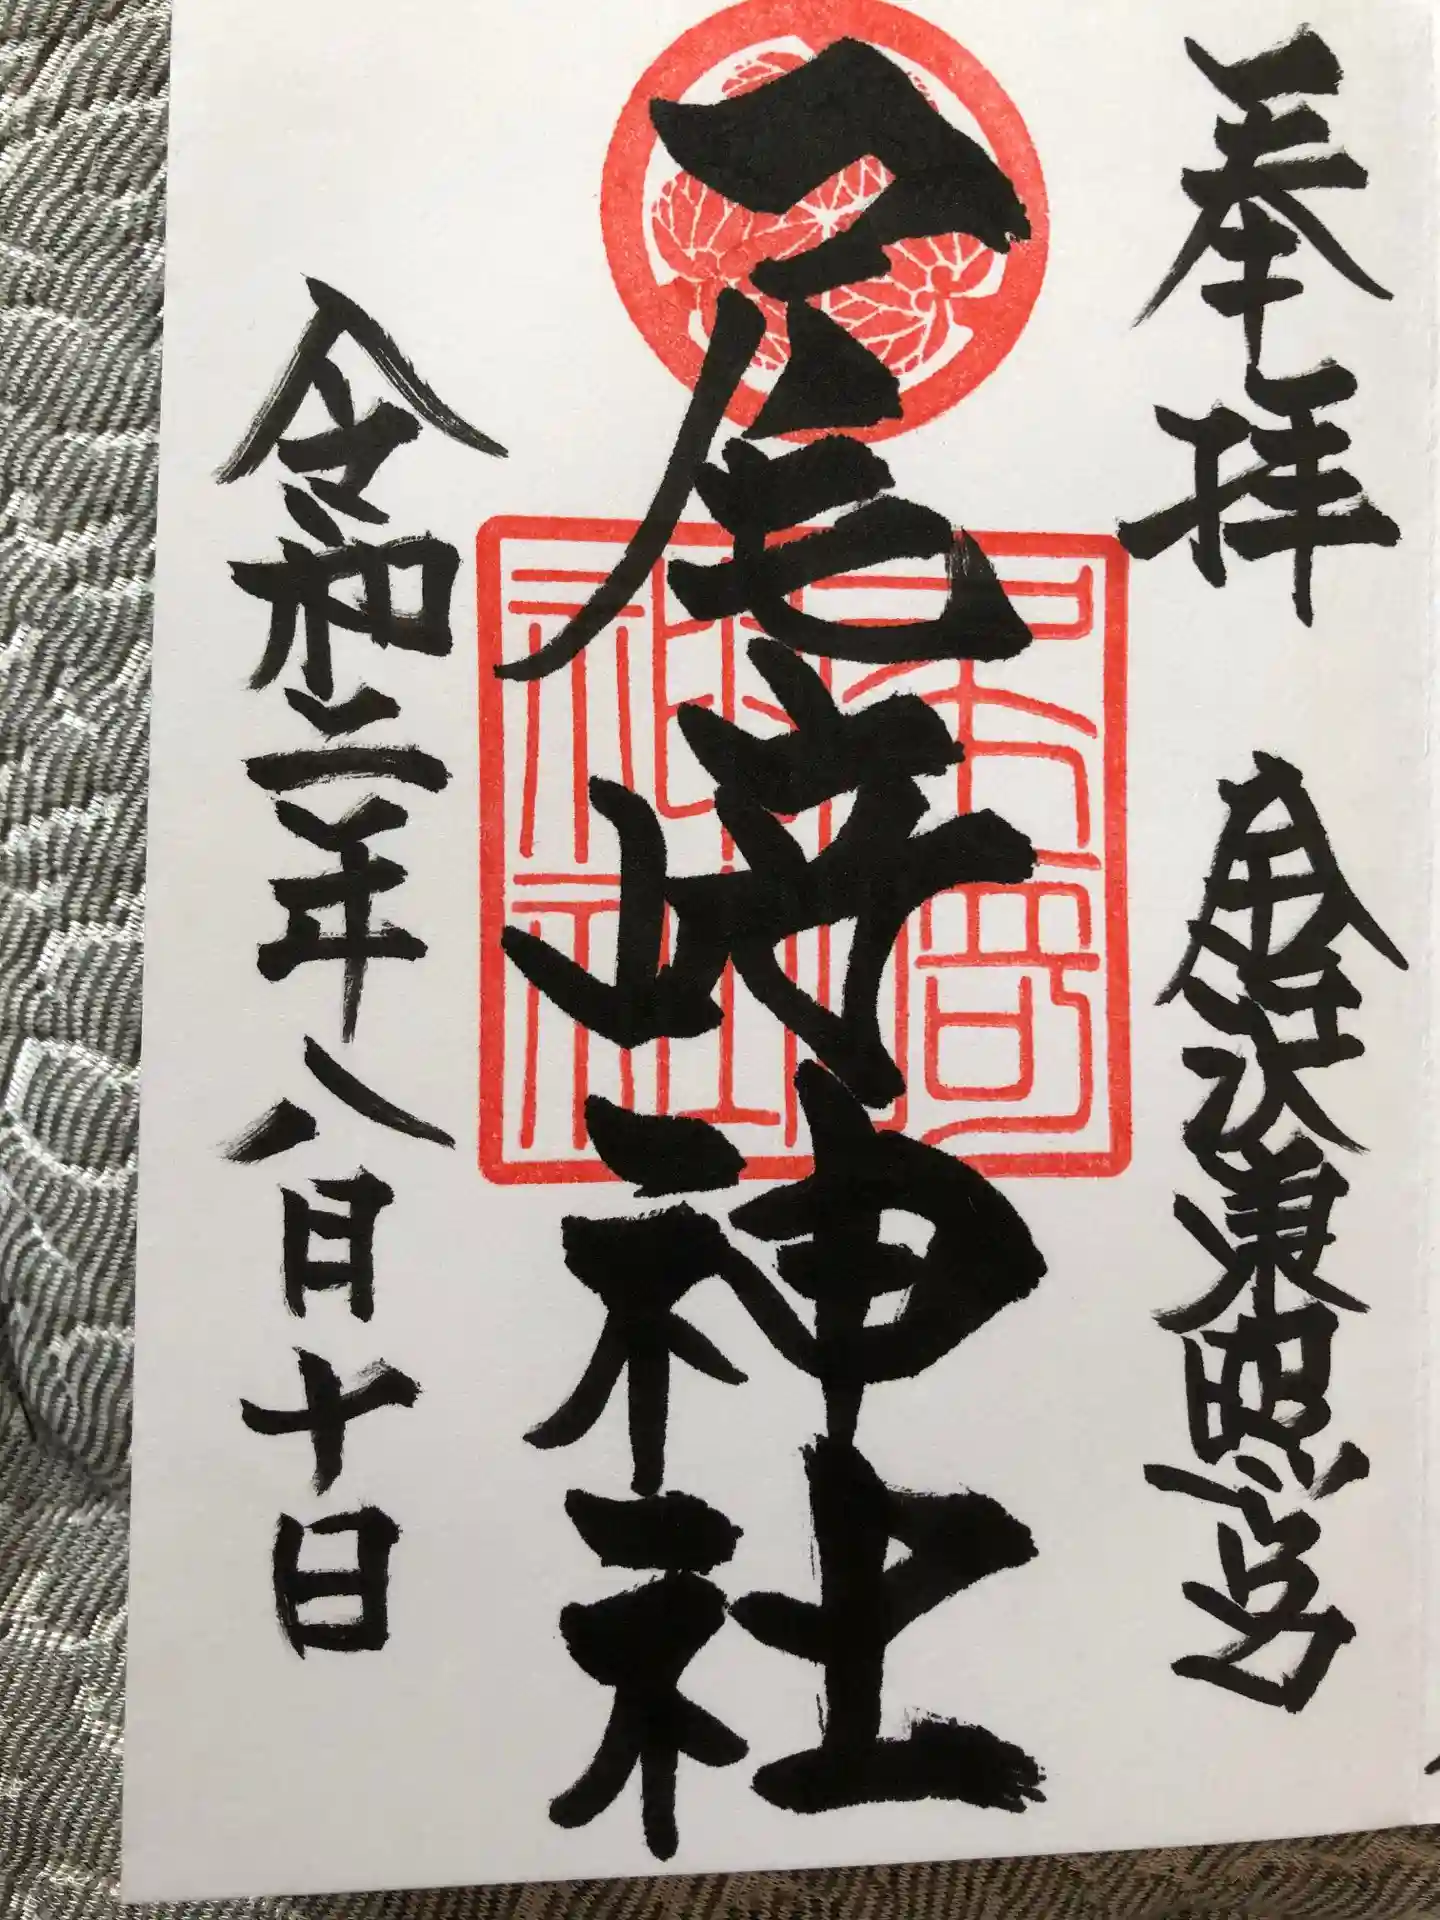 奉拝 金沢東照宮
尾崎神社
尾﨑神社
令和二年八月十日